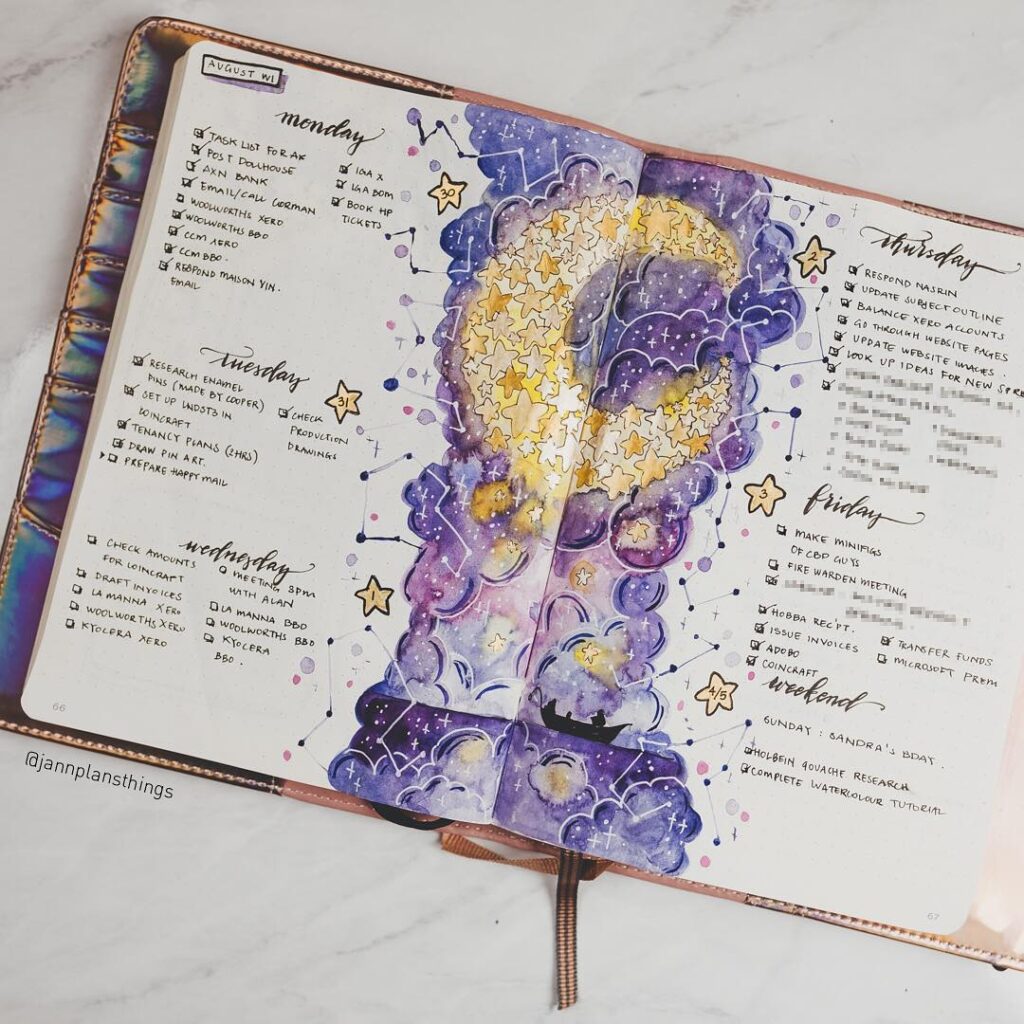 AUGUST W1
monday
30
TASK LIST FOR AK
POST DOLLHOUSE
AXN BANK
EMAIL/CALL GORMAN
WOOLWORTHS XERO
WOOLWORTHS BBO
CCM XERO
CCM BBO.
RESPOND MAISON YIN.
EMAIL
IGA X
IGA BOM
BOOK HP
TICKETS
tuesday
31
RESEARCH ENAMEL
PINS (MADE BY COOPER)
SET UP LNDSTS IN
COINCRAFT
TENANCY PLANS (2HRS)
DRAW PIN ART.
PREPARE HAPPY MAIL
CHECK
PRODUCTION
DRAWINGS
wednesday
1
CHECK AMOUNTS
FOR COINCRAFT
DRAFT INVOICES
LA MANNA XERO
WOOLWORTHS XERO
KYOCERA XERO
MEETING 3PM
WITH ALAN
LA MANNA BBO
WOOLWORTHS BBO
KYOCERA
BBO.
66
@jannplansthings
thursday
2
RESPOND NASRIN
UPDATE SUBJECT OUTLINE
BALANCE XERO ACCOUNTS
GO THROUGH WEBSITE PAGES
UPDATE WEBSITE IMAGES.
LOOK UP IDEAS FOR NEW SPRE
friday
3
MAKE MINIFIGS
OF CBD GUYS
FIRE WARDEN MEETING
HOBBA REC'PT.
ISSUE INVOICES
ADOBO
COINCRAFT
TRANSFER FUNDS
MICROSOFT PREM
weekend
4/5
SUNDAY : SANDRA'S BDAY.
HOLBEIN GOUACHE RESEARCH
COMPLETE WATERCOLOUR TUTORIAL
67